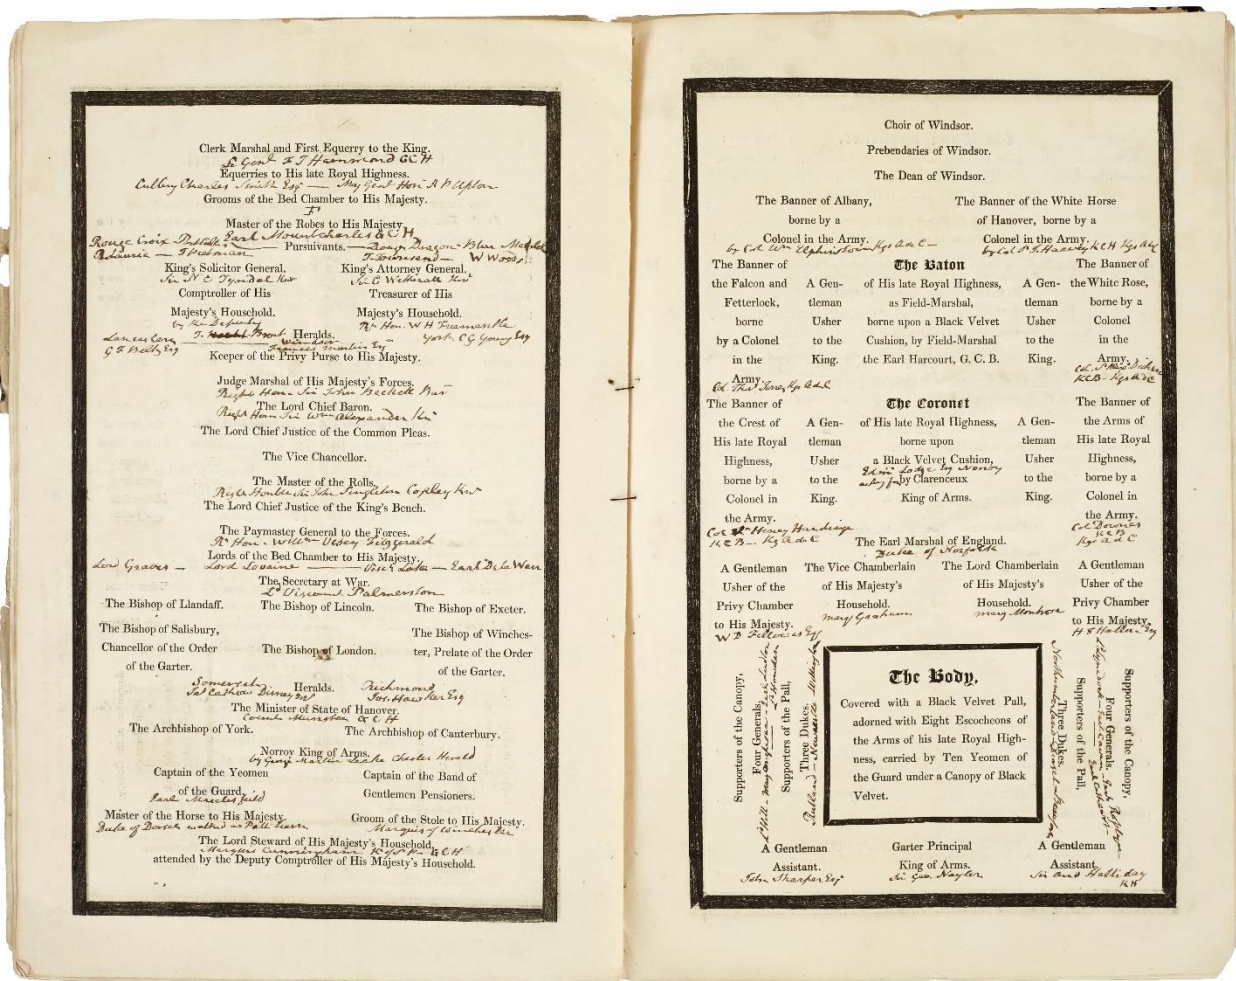 Clerk Marshal and First Equerry to the King.
Lt Genl F T Hammond GCH
Equerries to His late Royal Highness.
Cullling Charles Smith Esq — Maj Genl Hon A P Upton
Grooms of the Bed Chamber to His Majesty.
Master of the Robes to His Majesty
Earl Mountcharles GCH
Rouge Croix Portcullis
Pursuivants.
Rouge Dragon Blue
F Townsend W Woods
King's Solicitor General.
King's Attorney General.
Sir N C Tyndal Knt
Sir C Wetherell Knt
Comptroller of His
Treasurer of His
Majesty's Household.
Majesty's Household.
by the Deputy
Rt Hon. W H Freemantle
T. Brent
Heralds.
Lancaster
Windsor
York C G Young Esq
G F Beltz Esq
Francis Martin Esq
Keeper of the Privy Purse to His Majesty.
Judge Marshal of His Majesty's Forces.
Right Hon. Sir John Beckett Bart
The Lord Chief Baron.
Right Hon Sir Wm Alexander Knt
The Lord Chief Justice of the Common Pleas.
The Vice Chancellor.
The Master of the Rolls,
Right Honble Sir John Singleton Copley Knt
The Lord Chief Justice of the King's Bench.
The Paymaster General to the Forces.
Rt Hon. William Vesey Fitzgerald
Lords of the Bed Chamber to His Majesty.
Lord Graves — Lord Lovaine — Visct Lake — Earl De La Warr
The Secretary at War.
Ld Viscount Palmerston
The Bishop of Llandaff.
The Bishop of Lincoln.
The Bishop of Exeter.
The Bishop of Salisbury,
Chancellor of the Order
of the Garter.
The Bishop of London.
The Bishop of Winches-
ter, Prelate of the Order
of the Garter.
Somerset
Heralds.
Richmond
Jas Cathrow Disney Esq
Jos. Hawker Esq
The Minister of State of Hanover.
Count Munster GCH
The Archbishop of York.
The Archbishop of Canterbury.
Norroy King of Arms.
by George Martin Leake Chester Herald
Captain of the Yeomen
of the Guard,
Earl Macclesfield
Captain of the Band of
Gentlemen Pensioners.
Master of the Horse to His Majesty
Duke of Dorset walked as Pall bearer
Groom of the Stole to His Majesty.
Marquis of Winchester
The Lord Steward of His Majesty's Household,
Marquis Cunningham GCH
attended by the Deputy Comptroller of His Majesty's Household.
Choir of Windsor.
Prebendaries of Windsor.
The Dean of Windsor.
The Banner of Albany,
borne by a
Colonel in the Army.
by Col Wm Elphinstone Kgs A d C
The Banner of the White Horse
of Hanover, borne by a
Colonel in the Army.
by Col Sr J. Harvey KCH Kgs AdC
The Banner of
the Falcon and
Fetterlock,
borne
by a Colonel
in the
Army.
Col Thos Jones Kgs AdC
A Gen-
tleman
Usher
to the
King.
The Baton
of His late Royal Highness,
as Field-Marshal,
borne upon a Black Velvet
Cushion, by Field-Marshal
the Earl Harcourt, G. C. B.
A Gen-
tleman
Usher
to the
King.
The Banner of
the White Rose,
borne by a
Colonel
in the
Army.
KCB Kgs AdC
The Banner of
the Crest of
His late Royal
Highness,
borne by a
Colonel in
the Army.
KCB Kgs AdC
A Gen-
tleman
Usher
to the
King.
The Coronet
of His late Royal Highness,
borne upon
a Black Velvet Cushion,
Edmd Lodge Esq Norroy
acting for
by Clarenceux
King of Arms.
A Gen-
tleman
Usher
to the
King.
The Banner of
the Arms of
His late Royal
Highness,
borne by a
Colonel in
the Army.
Col Downes
KCB
Kgs A d C
The Earl Marshal of England.
Duke of Norfolk
A Gentleman
Usher of the
Privy Chamber
to His Majesty.
The Vice Chamberlain
of His Majesty's
Household.
Marq Graham
The Lord Chamberlain
of His Majesty's
Household.
Marq Montrose
A Gentleman
Usher of the
Privy Chamber
to His Majesty
Supporters of the Canopy,
Four Generals,
Supporters of the Pall,
Three Dukes.
Rutland — Newcastle — Wellington
The Body,
Covered with a Black Velvet Pall,
adorned with Eight Escocheons of
the Arms of his late Royal High-
ness, carried by Ten Yeomen of
the Guard under a Canopy of Black
Velvet.
Northumberland — Dorset — Beaufort
Three Dukes,
Supporters of the Pall,
Four Generals,
Supporters of the Canopy,
A Gentleman
Assistant.
John Sharper Esq
Garter Principal
King of Arms.
Sir Geo. Nayler
A Gentleman
Assistant.
Sir And Halliday
KH